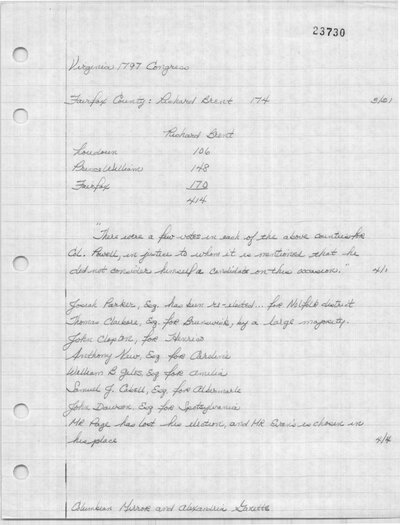 23730
Virginia 1797 Congress
Fairfax County: Richard Brent 174
Richard Brent
Loudoun 106
Prince William 148
Fairfax 170
414
"There were a few votes in each of the above counties for
Col. Powell, in justice to whom it is mentioned that he
did not consider himself a candidate on this occasion." 4/1
Josiah Parker, Esq. has been re-elected... for Norfolk district
Thomas Claiborne, Esq. for Brunswick, by a large majority.
John Clopton, for Henrico
Anthony New, Esq for Caroline
William B. Giles, Esq for Amelia
Samuel J. Cabell, Esq for Albermarle
John Dawson, Esq for Spotsylvania
MR Page has lost his election, and MR Evans is chosen in
his place 4/4
Columbian Mirror and Alexandria Gazette